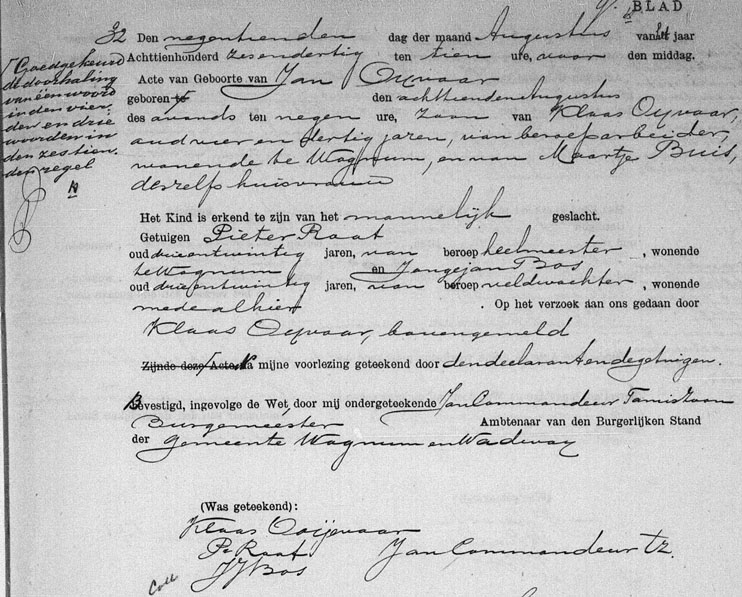 BLAD
32 Den negentienden dag der maand Augustus van het jaar
Achttienhonderd zesendertig ten tien ure, voor den middag.
Acte van Geboorte van Jan Oyvaar
geboren te den achttienden Augustus
des avonds ten negen ure, zoon van Klaas Oyvaar,
oud vier en dertig jaren, van beroep arbeider,
wonende te Wognum, en van Maartje Buis,
deszelfs huisvrouw
Goedgekeurd
de doorhaling
van één woord
in den vier
den en drie
woorden in
den zestien
den regel
Het Kind is erkend te zijn van het mannelijk geslacht.
Getuigen Pieter Raat
oud drieentwintig jaren, van beroep heelmeester, wonende
te Wognum en Jongejan Bos
oud drieentwintig jaren, van beroep veldwachter, wonende
mede alhier. Op het verzoek aan ons gedaan door
Klaas Oyvaar, bovengemeld
Zijnde deze Acte Na mijne voorlezing geteekend door den declarant en de getuigen.
Bevestigd, ingevolge de Wet, door mij ondergeteekende Jan Commandeur Tamiszoon
Burgemeester Ambtenaar van den Burgerlijken Stand
der Gemeente Wognum en Wadway
(Was geteekend):
Klaas Ooijevaar
Pr Raat Jan Commandeur Tz.
JJ Bos
Coll